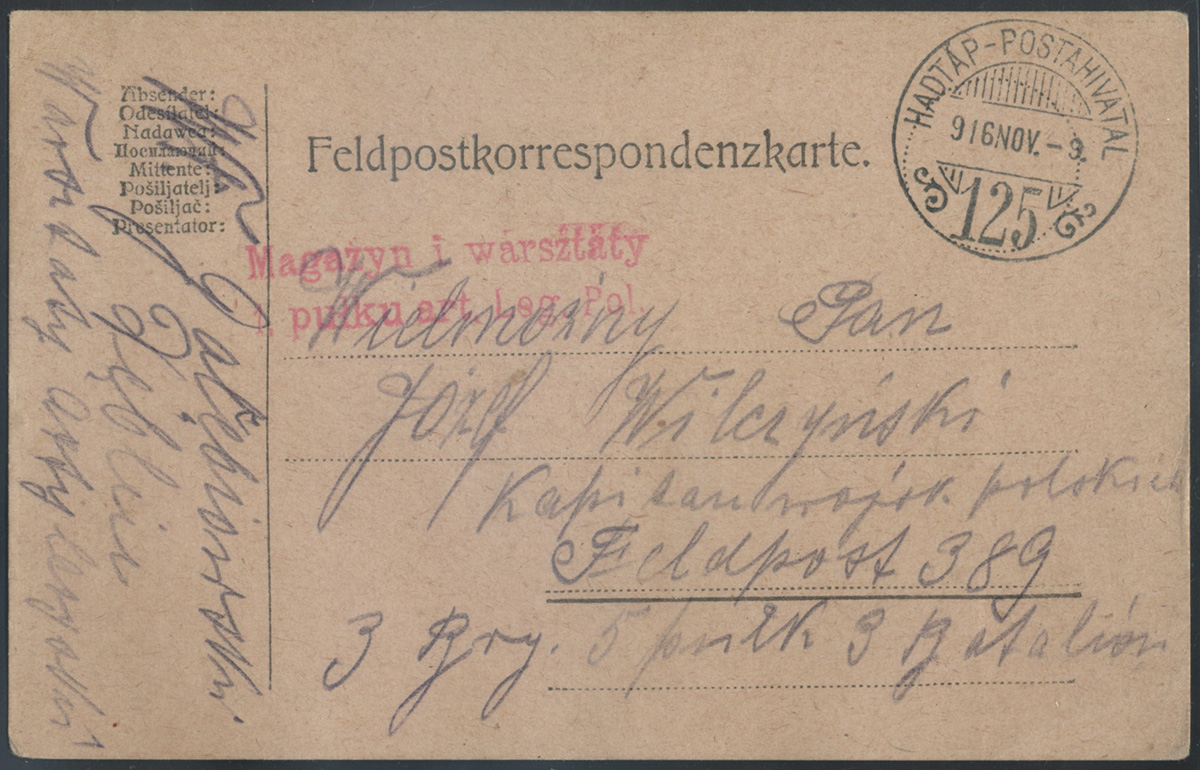 Absender:
Odesílatel:
Nadawca:
Посилаючий:
Mittente:
Pošiljatelj:
Pošiljač:
Presentator:
Feldpostkorrespondenzkarte.
HADTÁP-POSTAHIVATAL
916NOV.-9.
125
Magazyn i warsztaty
1. pułku art. Leg. Pol.
Wielmożny Pan
Józef Wilczyński
Kapitan wojsk. polskich
Feldpost 389
3 Bry. 5 pułk 3 Batalión
Dęblin
Warsztaty